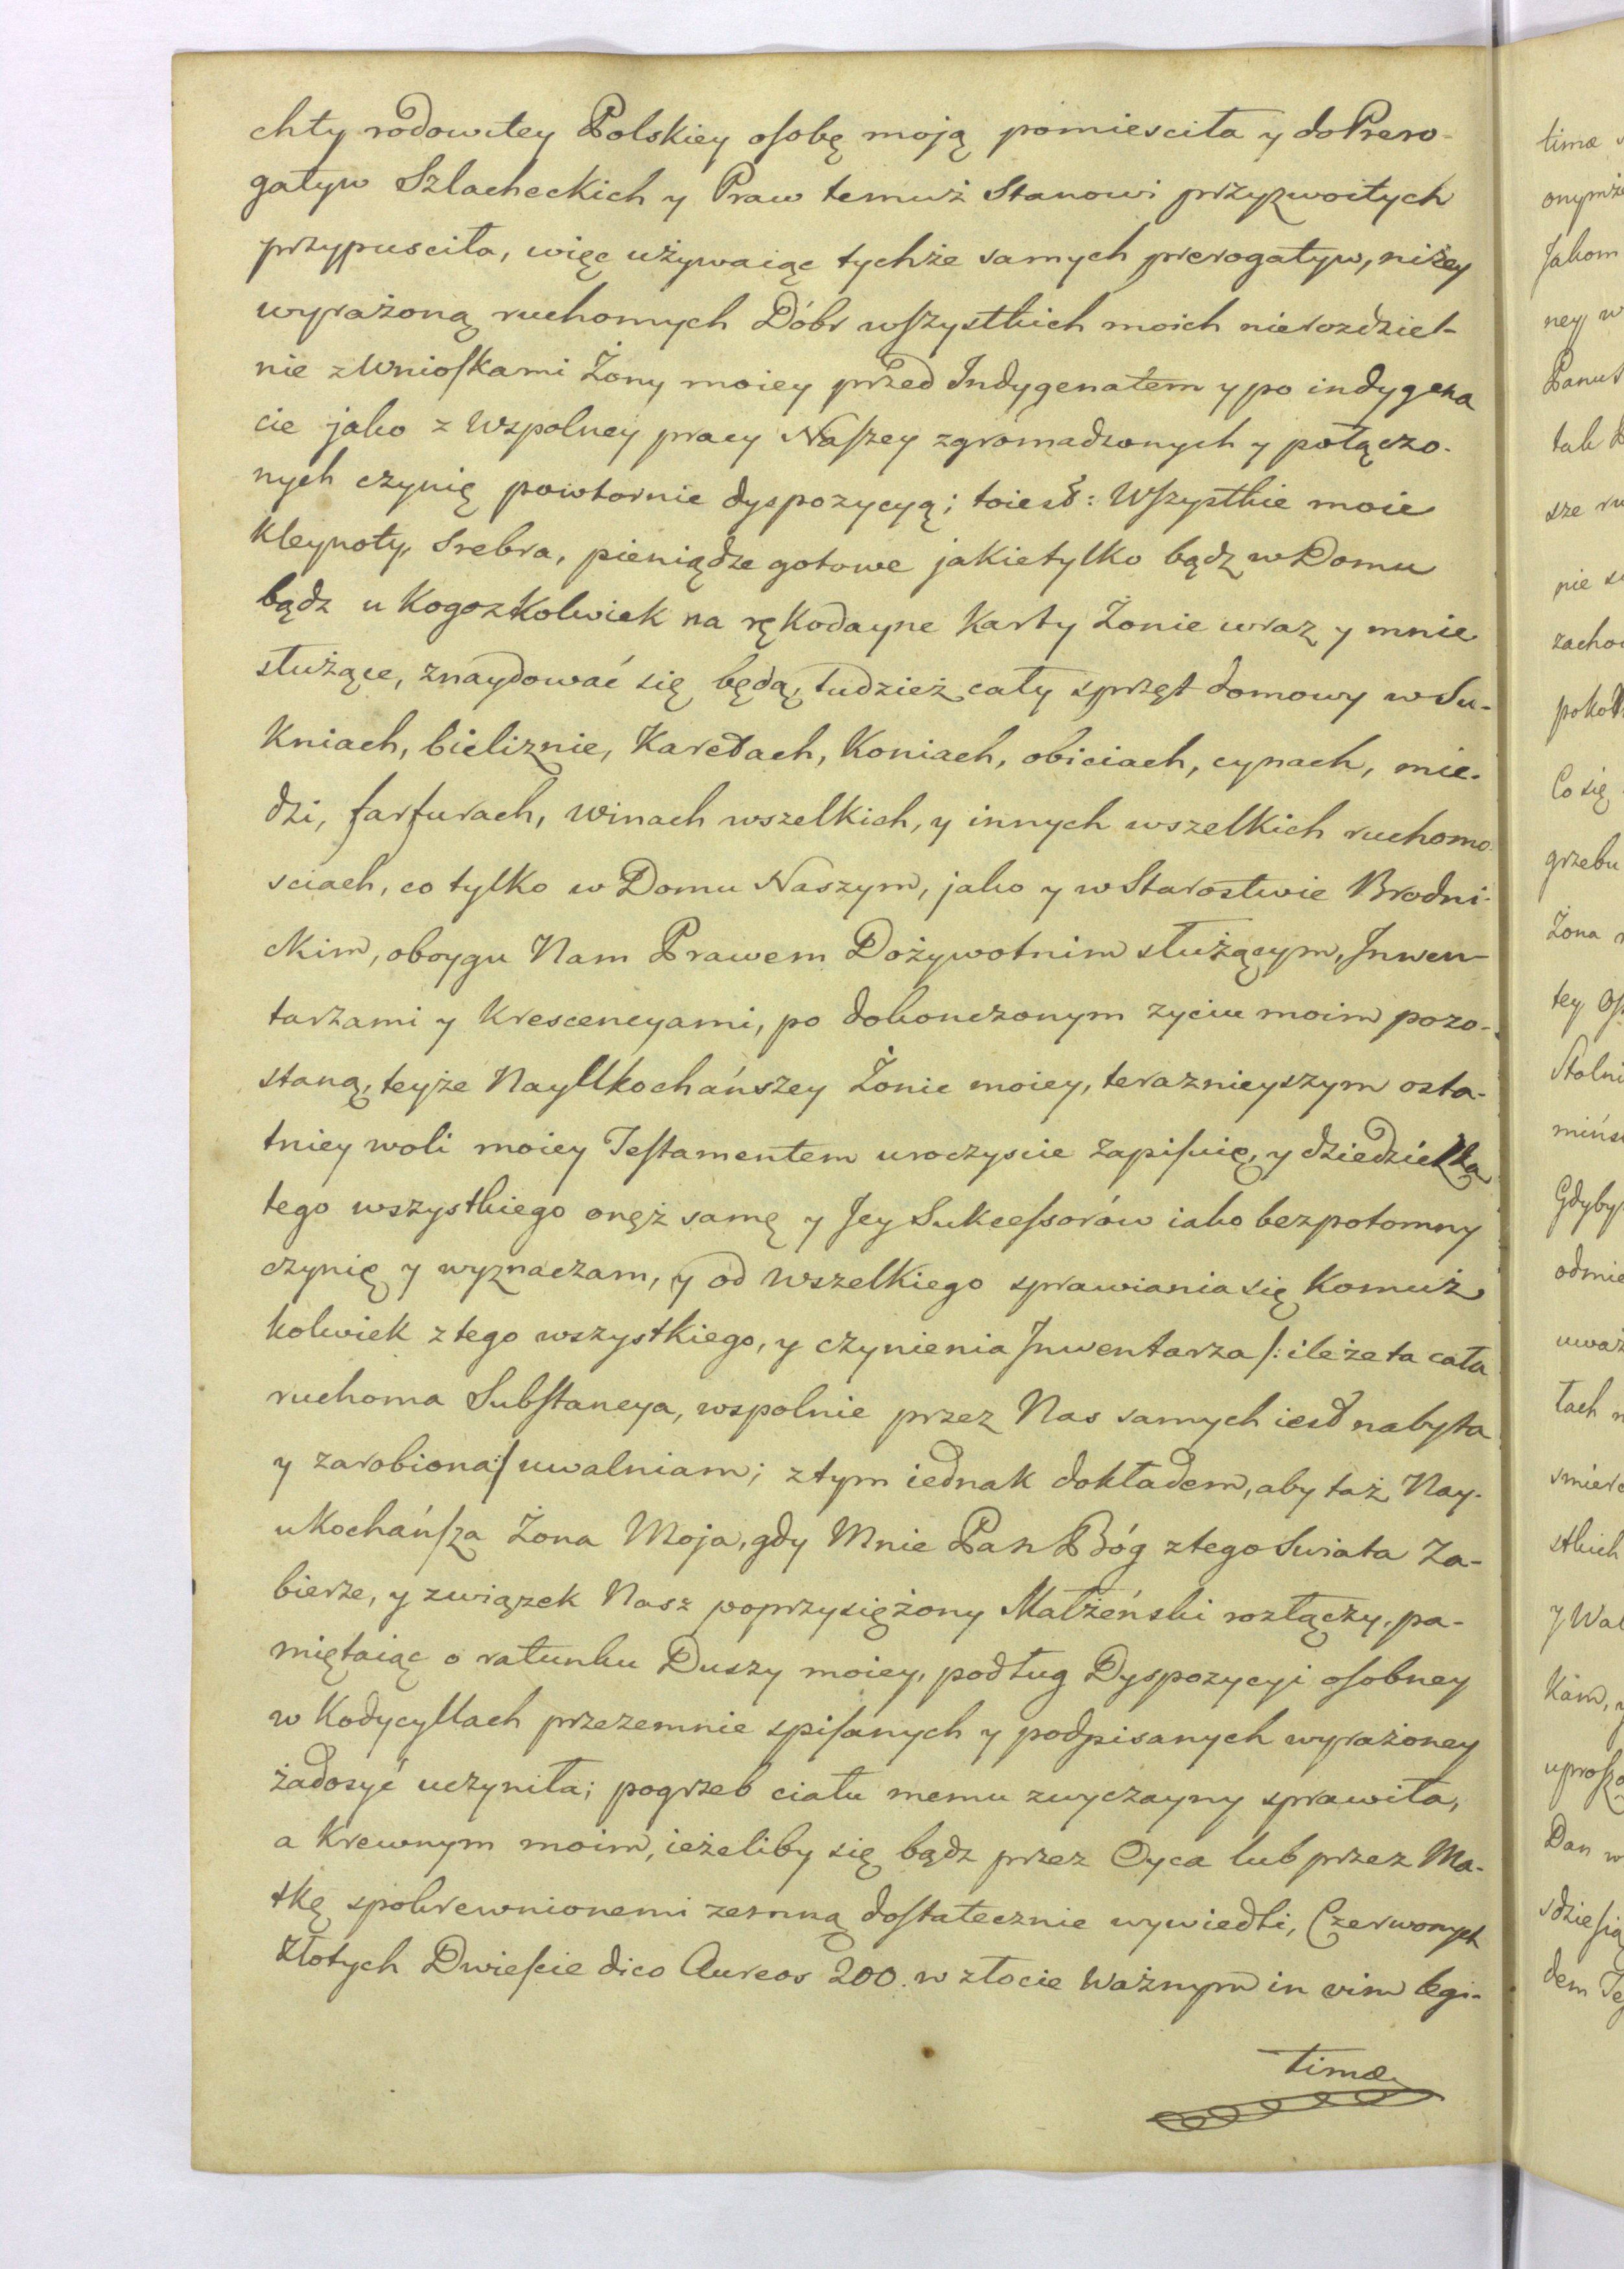 chty rodowitey Polskiey osobę moją pomiescita y do Prero-
gatyw Szlacheckich y Praw temuż Stanowi przyzwoitych
przypuscita, więc używaiąc tychże samych prerogatyw, niżey
wyrażoną ruchomych Dóbr wszystkich moich nierozdziel-
nie z Wnioskami Żony moiey przed Indygenatem y po indygena
cie jako z Wspolney pracy Naszey zgromadzonych y połączo-
nych czynię powtornie dyspozycyą; toiest: Wszystkie moie
Kleynoty, Srebra, pieniądze gotowe jakietylko bądz w Domu
bądz u Kogozkolwiek na rękodayne Karty Żonie wraz y mnie
służące, znaydować się będą, tudzież cały sprzęt domowy w Su-
kniach, bieliznie, Karetach, Koniach, obiciach, cynach, mie-
dzi, farfurach, winach wszelkich, y innych wszelkich ruchomo-
sciach, co tylko w Domu Naszym, jako y w Starostwie Brodni-
ckim, oboygu Nam Prawem Dożywotnim służącym, Inwen-
tarzami y Krescencyami, po dokonczonym zyciu moim pozo-
staną, teyże NayUkochańszey Żonie moiey, teraznieyszym osta-
tniey woli moiey Testamentem uroczyscie zapisuię, y dziedziczką
tego wszystkiego onęż samę y Jey Sukcessorów iako bezpotomny
czynię y wyznaczam, y od wszelkiego sprawiania się komuż
kolwiek z tego wszystkiego, y czynienia Inwentarza /: ile że ta cała
ruchoma Substancya, wspolnie przez Nas samych iest nabyta
y zarobiona :/ uwalniam; z tym iednak dokładem, aby taż Nay-
ukochańsza Żona Moja, gdy Mnie Pan Bóg z tego Swiata Za-
bierze, y związek Nasz poprzysiężony Małżeński rozłączy, pa-
miętaiąc o ratunku Duszy moiey, podług Dyspozycyi osobney
w Kodycyllach przezemnie spisanych y podpisanych wyrażoney
żadosyć uczyniła; pogrzeb ciału memu zwyczayny sprawiła,
a Krewnym moim, ieżeliby się bądz przez Oyca lub przez Ma-
tkę spokrewnionemi zemną dostatecznie wywiedli, Czerwonych
Złotych Dwieście dico Aureos 200. w złocie Ważnym in vim legi-
timæ